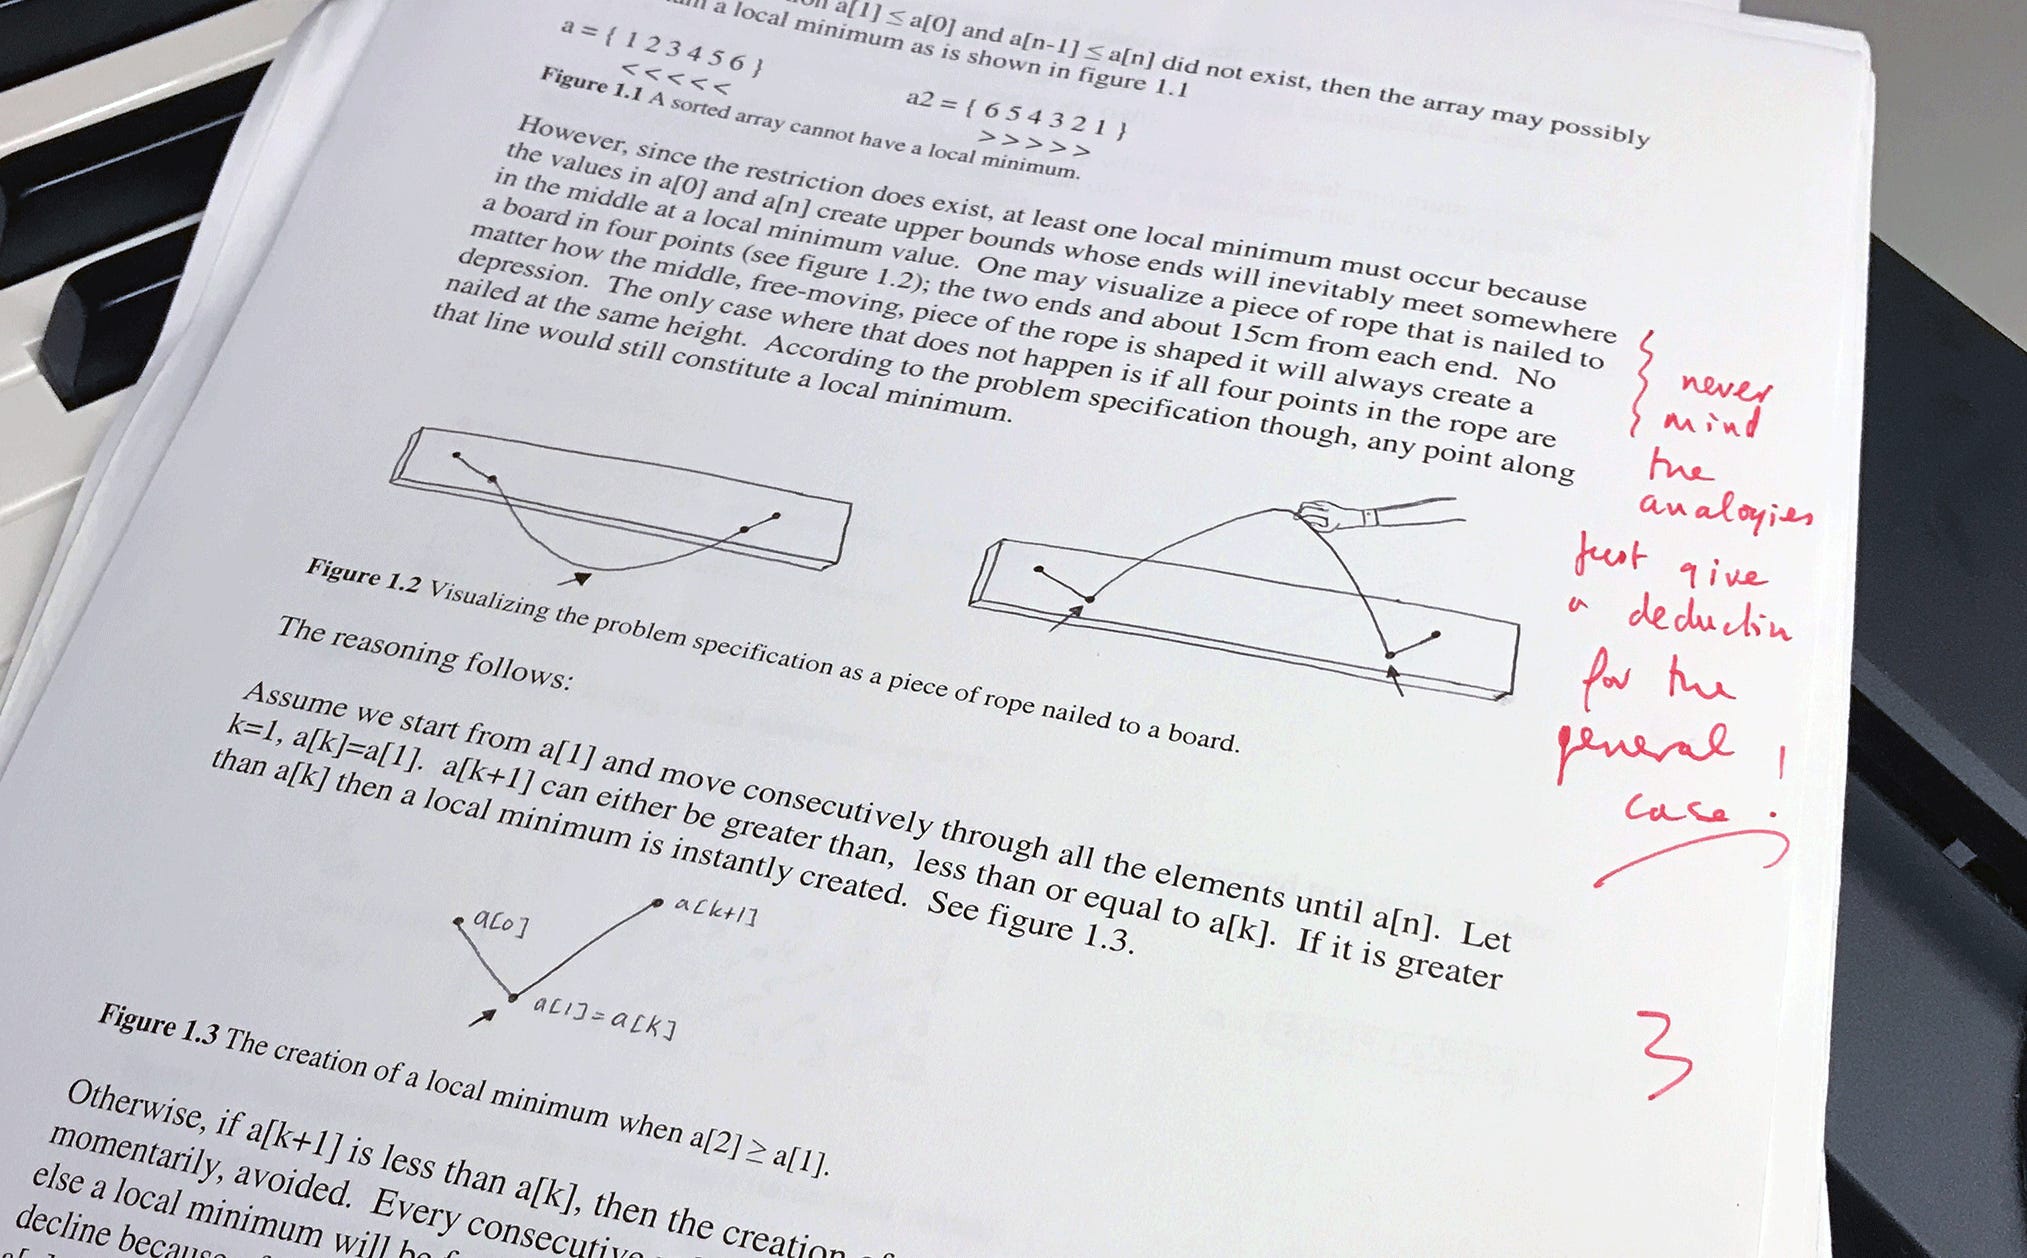 a[1] ≤ a[0] and a[n-1] ≤ a[n] did not exist, then the array may possibly
a local minimum as is shown in figure 1.1
a = { 1 2 3 4 5 6 }
< < < < <
a2 = { 6 5 4 3 2 1 }
> > > > >
Figure 1.1 A sorted array cannot have a local minimum.
However, since the restriction does exist, at least one local minimum must occur because
the values in a[0] and a[n] create upper bounds whose ends will inevitably meet somewhere
in the middle at a local minimum value. One may visualize a piece of rope that is nailed to
a board in four points (see figure 1.2); the two ends and about 15cm from each end. No
matter how the middle, free-moving, piece of the rope is shaped it will always create a
depression. The only case where that does not happen is if all four points in the rope are
nailed at the same height. According to the problem specification though, any point along
that line would still constitute a local minimum.
never
mind
the
analogies
just give
a deduction
for the
general
case !
Figure 1.2 Visualizing the problem specification as a piece of rope nailed to a board.
The reasoning follows:
Assume we start from a[1] and move consecutively through all the elements until a[n]. Let
k=1, a[k]=a[1]. a[k+1] can either be greater than, less than or equal to a[k]. If it is greater
than a[k] then a local minimum is instantly created. See figure 1.3.
a[0]
a[k+1]
a[1]=a[k]
3
Figure 1.3 The creation of a local minimum when a[2] ≥ a[1].
Otherwise, if a[k+1] is less than a[k], then the creation
momentarily, avoided. Every consecutive
else a local minimum will be
decline because